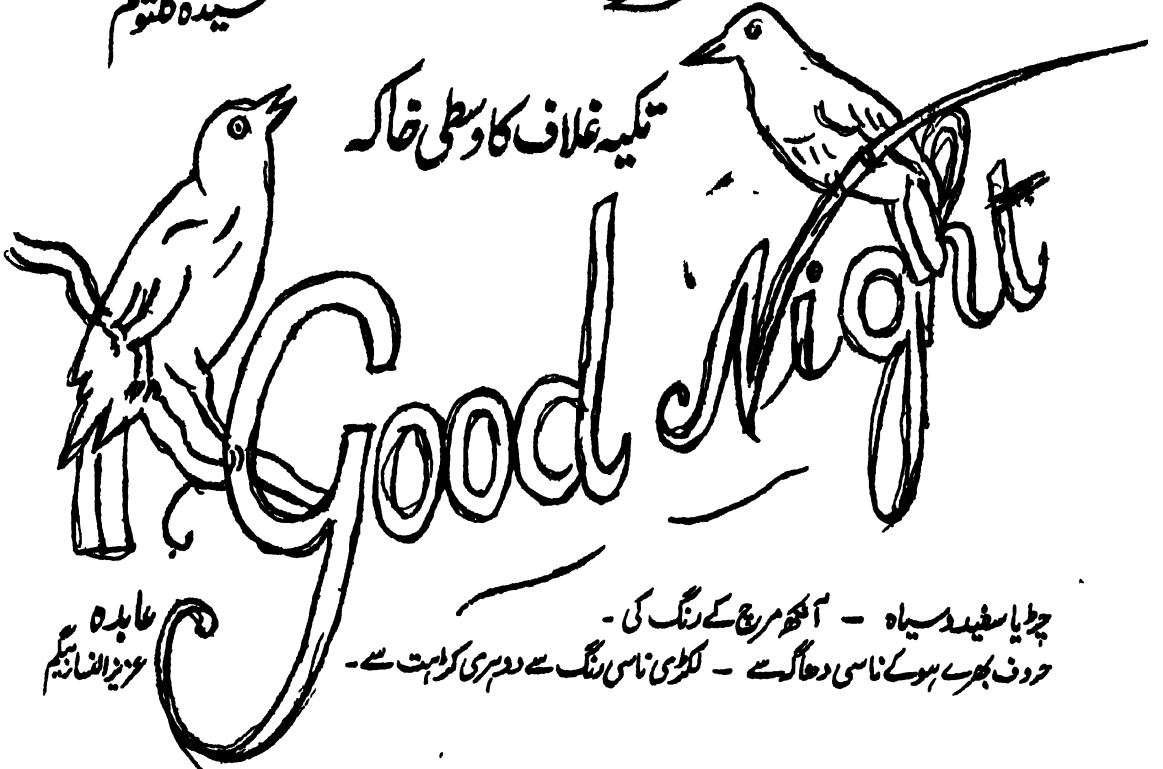 تکیہ غلاف کا وسطی خاکہ
Good Night
چڑیا سفید و سیاہ — آنکھ مرچ کے رنگ کی -
حروف بھرے ہوئے ناسی دھاگہ سے — لکڑی ناسی رنگ سے دوہری کڑاہت سے -
عابدہ
عزیز النسا بیگم